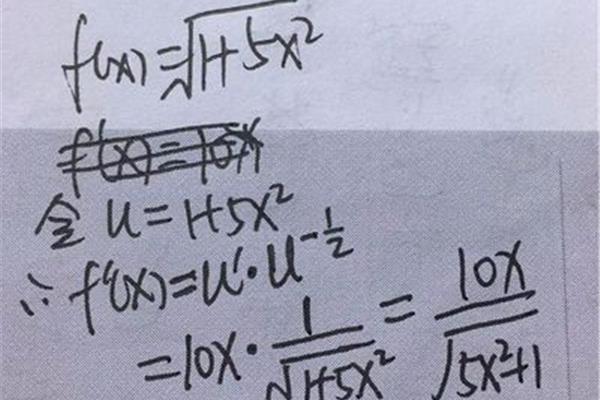 f(x)=√(1+5x²)
f'(x)=10x
令 u=1+5x²
∴ f'(x)=u'·u^(-1/2)
=10x·1/√(1+5x²)=10x/√(5x²+1)